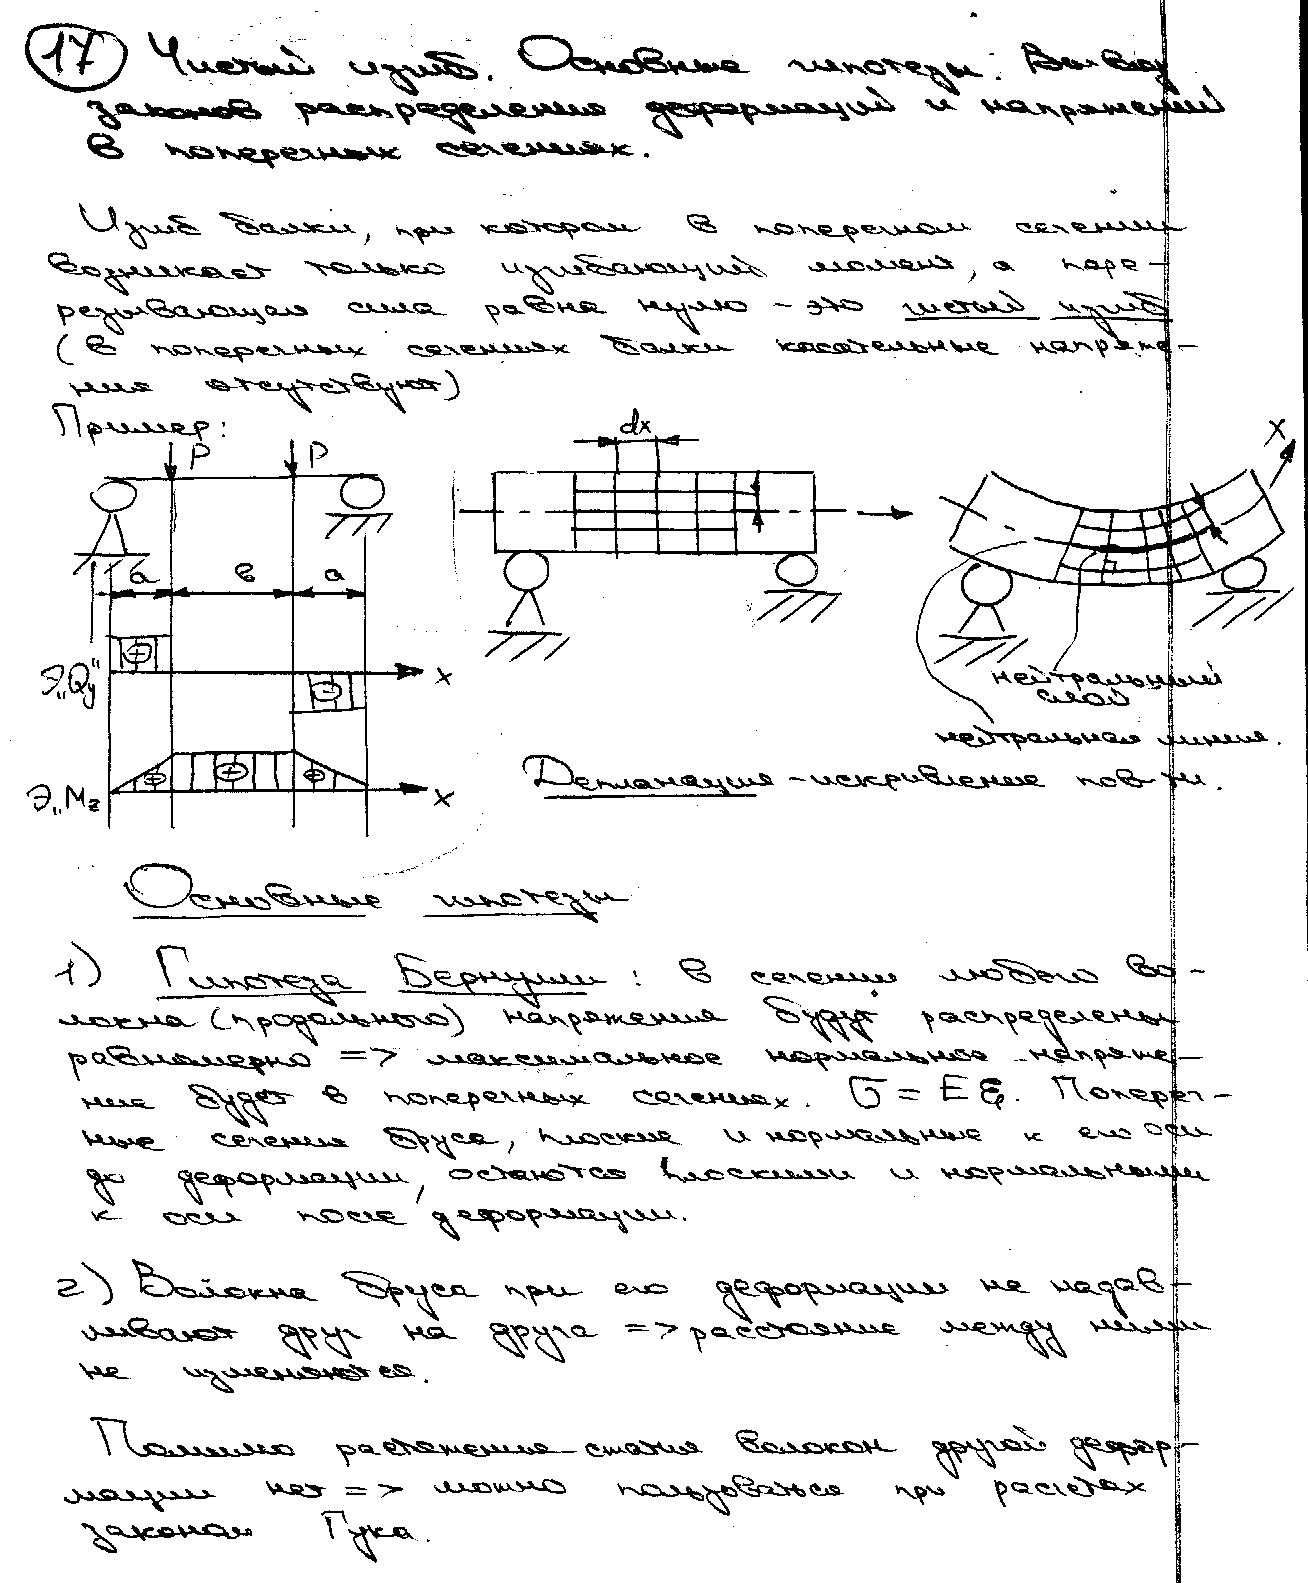 17 Чистый изгиб. Основные гипотезы. Вывод
законов распределения деформаций и напряжений
в поперечных сечениях.
Изгиб балки, при котором в поперечном сечении
возникает только изгибающий момент, а пере-
резывающая сила равна нулю - это чистый изгиб
(в поперечных сечениях балки касательные напряже-
ния отсутствуют)
Пример:
P P
a в a
Э„Qy"
x
Э„Mz
x
dx
x
нейтральный
слой
нейтральная линия.
Депланация - искривление пов-ти.
Основные гипотезы
1) Гипотеза Бернулли: в сечении любого во-
локна (продольного) напряжения будут распределены
равномерно => максимальное нормальное напряже-
ние будет в поперечных сечениях. σ = Eε. Попереч-
ные сечения бруса, плоские и нормальные к его оси
до деформации, остаются плоскими и нормальными
к оси после деформации.
2) Волокна бруса при его деформации не надав-
ливают друг на друга => расстояние между ними
не изменяются.
Помимо растяжения-сжатия волокон другой дефор-
мации нет => можно пользоваться при расчетах
законом Гука.